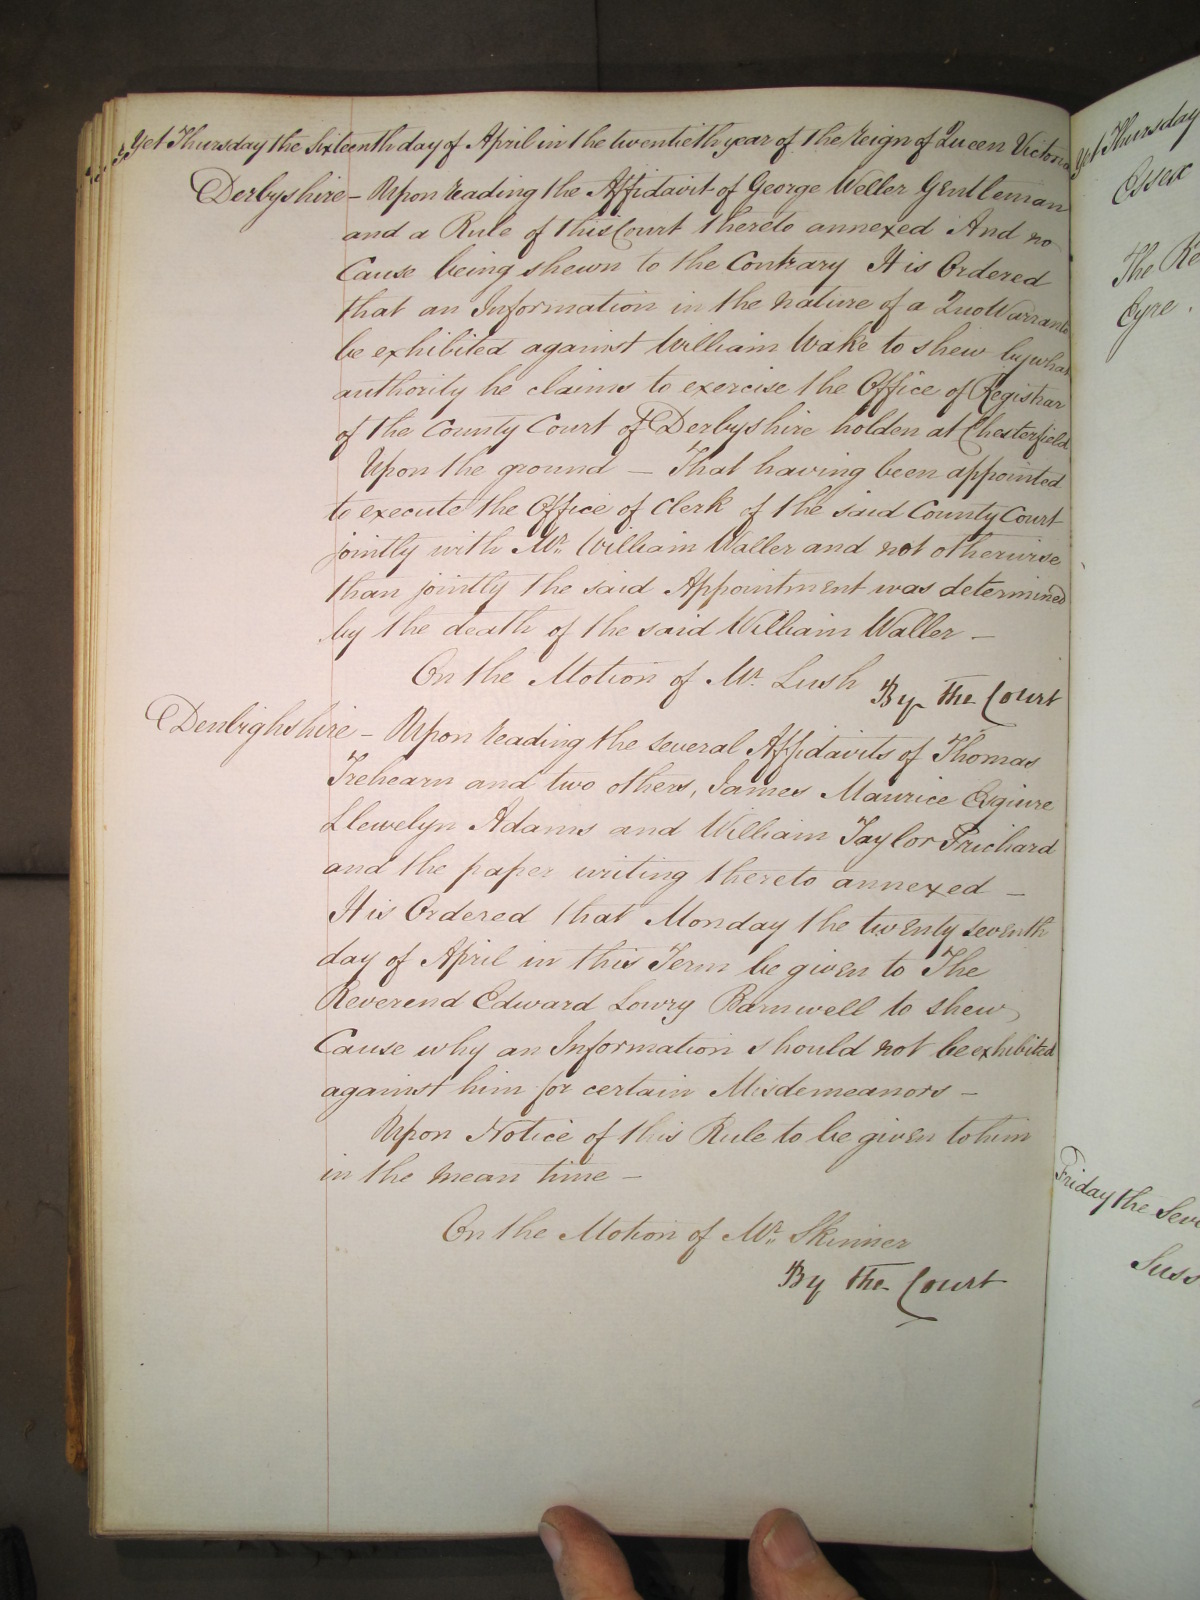 Yet Thursday the Sixteenth day of April in the twentieth year of the Reign of Queen Victoria
Derbyshire – Upon reading the Affidavit of George Weller Gentleman
and a Rule of this Court thereto annexed And no
Cause being shewn to the Contrary It is Ordered
that an Information in the nature of a Quo Warranto
be exhibited against William Wake to shew by what
authority he claims to exercise the Office of Registrar
of the County Court of Derbyshire holden at Chesterfield
Upon the ground – That having been appointed
to execute the Office of Clerk of the said County Court
jointly with Mr. William Waller and not otherwise
than jointly the said Appointment was determined
by the death of the said William Waller –
On the Motion of Mr. Lush
By the Court
Denbighshire – Upon reading the several Affidavits of Thomas
Trehearn and two others, James Maurice Esquire
Llewelyn Adams and William Taylor Prichard
and the paper writing thereto annexed –
It is Ordered that Monday the twenty seventh
day of April in this Term be given to The
Reverend Edward Lowry Barnwell to shew
Cause why an Information should not be exhibited
against him for certain Misdemeanors –
Upon Notice of this Rule to be given to him
in the mean time –
On the Motion of Mr. Skinner
By the Court
Yet Thursday
Essex
The
Eyre
Friday the